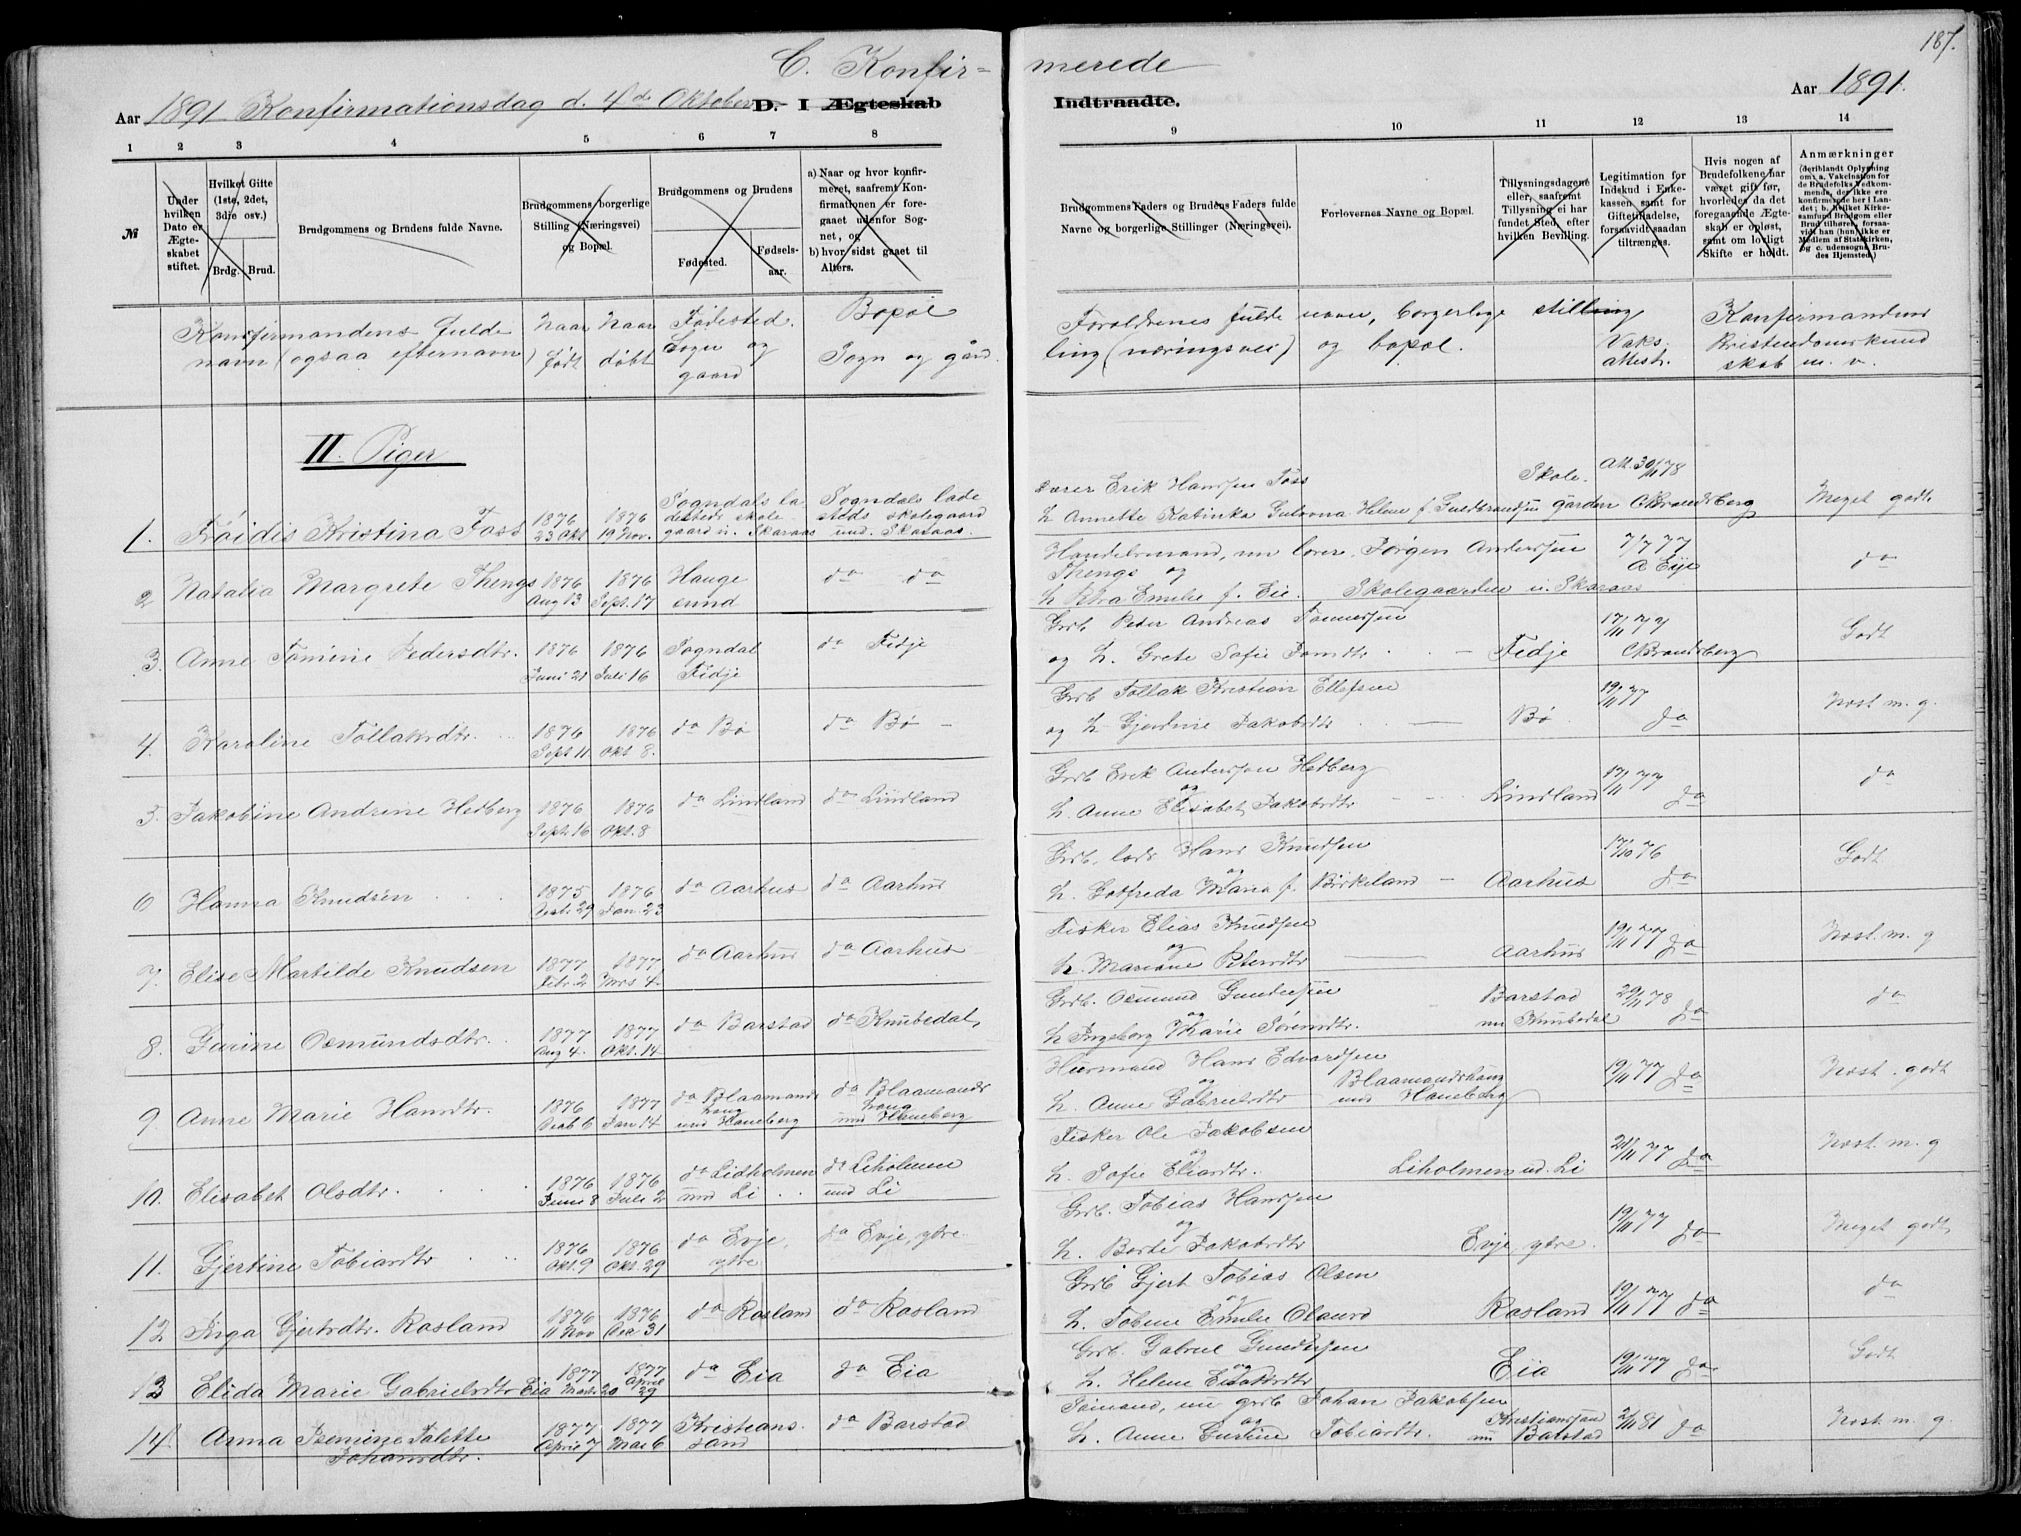 C. Konfir-
merede
187.
Aar 1891 Konfirmationsdag d. 4de Oktober D. I Ægteskab
Indtraadte.
Aar 1891.
1 2 3 4 5 6 7 8
9 10 11 12 13 14
№
Under hvilken Dato er Ægteskabet stiftet.
Hvilket Gifte (1ste, 2det, 3die osv.)
Brdg. Brud.
Brudgommens og Brudens fulde Navne.
Brudgommens og Brudens borgerlige Stilling (Næringsvei) og Bopæl.
Brudgommens og Brudens
Fødested.
Fødsels-aar.
a) Naar og hvor konfir-
meret, saafremt Kon-
firmationen er fore-
gaaet udenfor Sog-
net, og
b) hvor sidst gaaet til
Alters.
Brudgommens Faders og Brudens Faders fulde
Navne og borgerlige Stillinger (Næringsvei).
Forlovernes Navne og Bopæl.
Tillysningsdagene
eller, saafremt
Tillysning ei har
fundet Sted, efter
hvilken Bevilling.
Legitimation for
Indskud i Enke-
kassen samt for
Giftetilladelse,
forsaavidt saadan
tiltrænges.
Hvis nogen af
Brudefolkene har
været gift før,
hvorledes da det
foregaaende Ægte-
skab er opløst,
samt om lovligt
Skifte er holdt.
Anmærkninger
(deriblandt Oplysning
om: a. Vakcination for
de Brudefolks Vedkom-
mende, der ikke ere
konfirmerede her i Lan-
det; b. hvilket Kirke-
samfund Brudgom eller
Brud tilhører, forsaa-
vidt han (hun) ikke er
Medlem af Statskirken,
og c. udensogns Bru-
des Hjemsted.)
Konfirmandens fulde navn (ogsaa efternavn)
Naar født
Naar døbt
Fødested. Sogn og gaard
Bopæl Sogn og gård.
Forældrenes fulde navn, borgerlige stilling
ling (næringsvei) og bopæl.
Vaks. attest.
Konfirmandens Kristendomskundskab m. v.
II. Piger
1. Frøidis Kristina Foss 1876 23 Okt 1876 19 Nov. Sogndals ladesteds skolegaard u. Skaraas Sogndals ladesteds skolegaard und. Skaraas.
Lærer Erik Hansen Foss Skole- Att. 30/11 78
h. Annette Katinka Gulovna Helene f. Guldbrandsen gården CBrandsberg Meget godt
2 Natalia Margrete Thengs 1876 Aug 13 1876 Sept. 17 Haugesund do do
Handelsmand, nu lærer Jørgen Anderssen Thengs og 7/7 77 A Eije do
h. Emilie f. Eie. Skolegaarden u. Skaraas
3. Anne Tomine Pedersdtr. 1876 Juni 21 1876 Juli 16 Sogndal Fidje do Fidje
Grb Peter Andreas Tønnessen
og h. Grete Sofie - Fidje CBrandsberg Godt
4. Karoline Tollaksdtr. 1876 Sept 11 1876 Okt 8. do Bø do Bø -
Grb Tollak Kristian Ellefsen 19/11 77
og h. Gjertine Jakobsdtr - Bø do Nost m. g.
5. Jakobine Andrine Hedberg 1876 Sept. 16 1876 Okt. 8 do Lindland do Lindland
Grb Erik Anderssen Hedberg 17/11 77
og h. Anne Elisabet Jakobsdtr - Lindland do do
6 Hanna Knudsen 1875 29 1876 Jan. 23 do Aarhus do Aarhus
Grb. Hans Knudsen 17/10 76
og h. Gotfreda Maria f. Birkeland - Aarhus do Godt
7. Elise Martilde Knudsen 1877 Febr. 2 1877 Mrs 4. do Aarhus do Aarhus
Fisker Elias Knudsen 19/11 77 do
og h. Mariane Petersdtr Aarhus Nost. m. g
8. Gurine Osmundsdtr. 1877 Aug 4. 1877 Okt. 14 do Barstad do Knubedal,
Grb. Osmund Gundersen Barstad 29/11 78
og h. Ingeborg Marie Sørensdtr. nu Knubedal do do
9 Anne Marie Hansdtr. 1876 Decb 6 1877 Jan 14 do Blaamandshaug und Haneberg do Blaamandshaug und Haneberg
Husmand Hans Edvardsen Blaamandshaug 19/11 77 do
og h. Anne Gabrielsdtr und Haneberg Nost. godt
10. Elisabet Olsdtr. 1876 Juni 8 1876 Juli 2 do Lidholmen und Li do Liholmen und Li
Fisker Ole Jakobsen 21/11 77 do
og h. Sofie Eliasdtr. Liholmen ud. Li Nost. m. g
11. Gjertine Tobiasdtr 1876 Okt. 9 1876 Okt. 29 do Evje ytre do Evje ytre
Grb. Tobias Hanssen 19/11 77 do
og h. Berte Jakobsdtr Evje ytre. Meget godt
12 Inga Gjertsdtr. Rosland 1876 11 Nov 1876 Dec 31 do Rosland do Rosland
Grb Gjert Tobias Olsen 19/11 77 do
og h. Tobine Emilie Rosland do
13 Elida Marie Gabrielsdtr Eia 1877 Marts 20 1877 April 29 do Eia do Eia
Grb. Gabriel Gundersen 19/11 77 do
og h. Helene Eia Godt
14. Anna Jsemine Talette Johansdtr. 1877 April 7 1877 Mai 6 Kristianssand do Barstad
Sømand, nu grb Johan Jakobsen Kristianssand 2/11 81 do
og h. Anne Gurine Tobiasdtr. nu Barstad Nost m. g